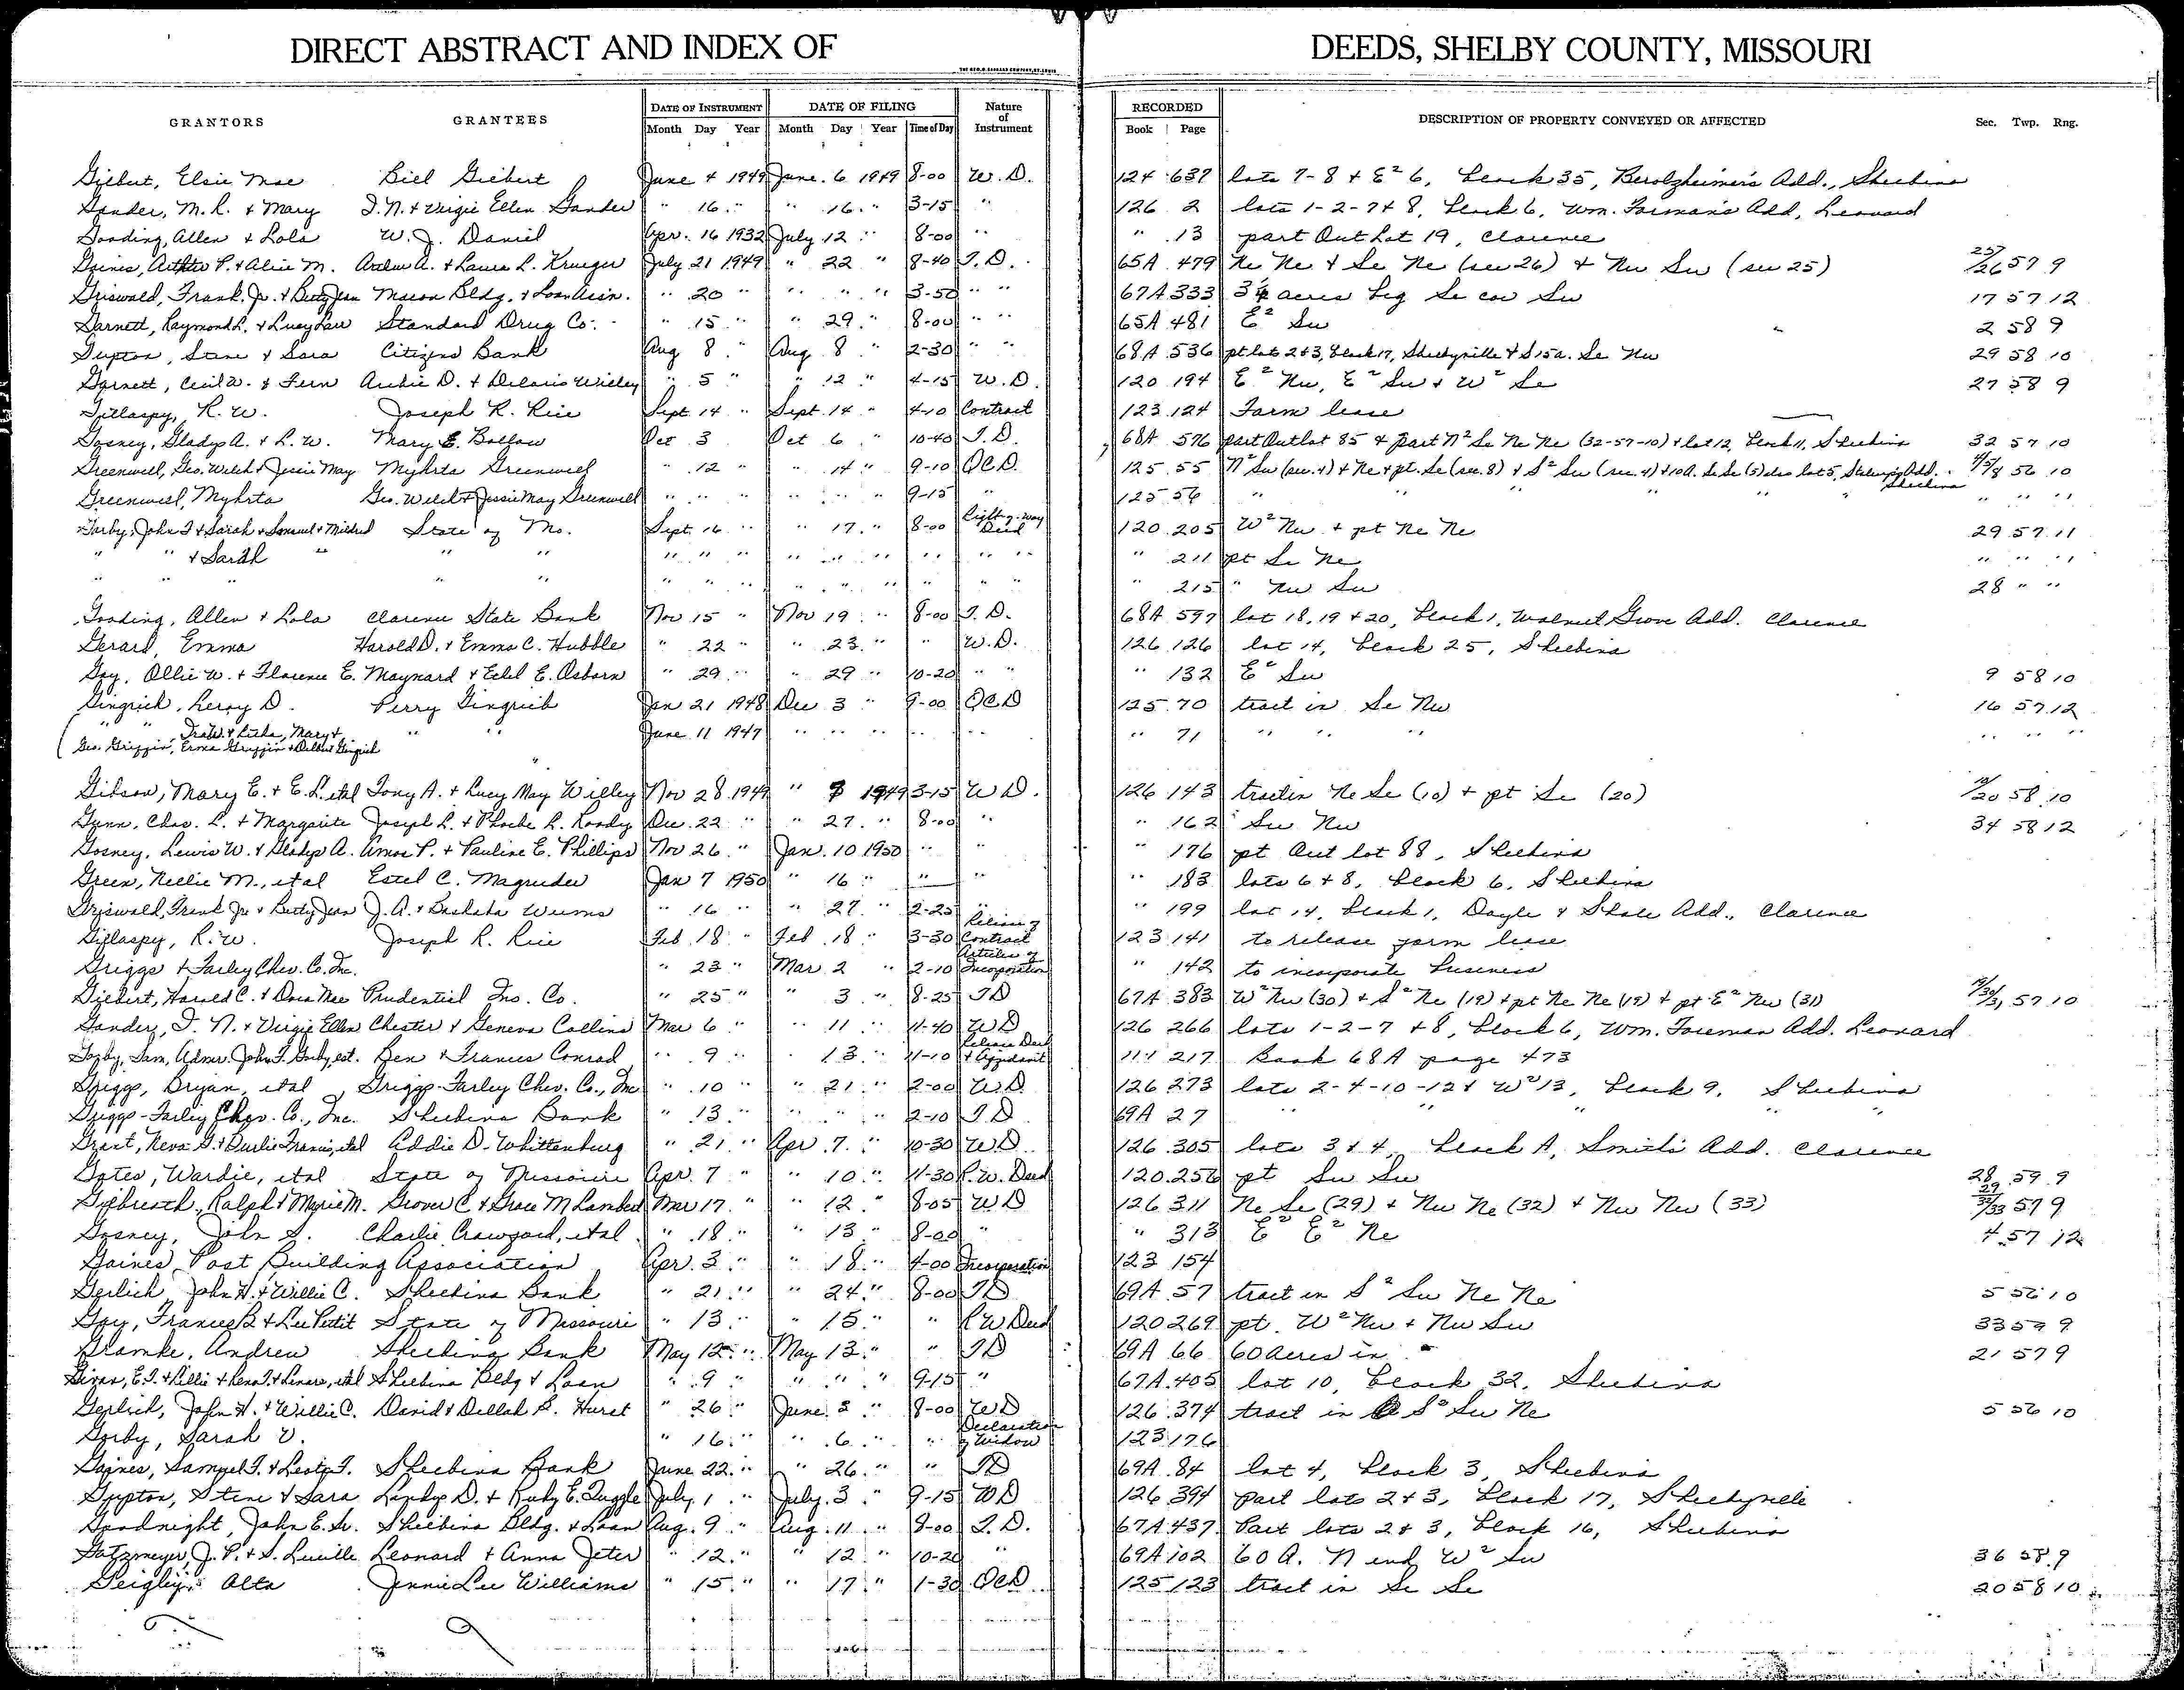 DIRECT ABSTRACT AND INDEX OF DEEDS, SHELBY COUNTY, MISSOURI
GRANTORS GRANTEES DATE OF INSTRUMENT DATE OF FILING Nature of Instrument RECORDED DESCRIPTION OF PROPERTY CONVEYED OR AFFECTED Sec. Twp. Rng.
Month Day Year Month Day Year Time of Day Book Page
Gilbert, Elsie Mae Bill Gilbert June 4 1949 June 6 1949 8-00 W.D. 124 637 lots 7-8 & E² 6, block 35, Berolzheimer's Add., Shelbina
Gander, M.R. & Mary I.N. & Virgie Ellen Gander " 16 " " 16 " 3-15 " 126 2 lots 1-2-7 & 8, block 6, Wm. Forman's Add, Leonard
Gooding, Allen & Lola W.J. Daniel Apr. 16 1932 July 12 " 8-00 " " 13 part Out Lot 19, Clarence
Gaines, Arthur P. & Alice M. Arthur A. & Laura L. Krueger July 21 1949 " 22 " 8-40 T.D. 65A 479 Ne Ne & Se Ne (sec 26) & Nw Sw (sec 25) 25/26 57 9
Griswald, Frank, Jr. & Betty Jean Macon Bldg. & Loan Assn. " 20 " " " " 3-50 " " 67A 333 acres beg Se cor Sw 17 57 12
Garnett, Raymond L. & Lucy Lou Standard Drug Co. " 15 " " 29 " 8-00 " " 65A 481 E² Sw 2 58 9
Gupton, Stene & Sara Citizens Bank Aug 8 " Aug 8 " 2-30 " " 68A 536 pt lots 2 & 3, block 17, Shelbyville & S 15a. Se Nw 29 58 10
Garnett, Cecil W. & Fern Archie D. & Deloris Willey " 5 " " 12 " 4-15 W.D. 120 194 E² Nw, E² Sw & W² Se 27 58 9
Gillaspy, R.W. Joseph R. Rice Sept. 14 " Sept. 14 " 4-10 Contract 123 124 Farm lease
Gosney, Gladys A. & L.W. Mary E. Ballow Oct 3 Oct 6 " 10-40 T.D. 68A 576 part Outlot 85 & part N² Se Ne Ne (32-57-10) & lot 12, block 11, Shelbina 32 57 10
Greenwell, Geo. Welch & Jessie May Myhrta Greenwell " 12 " " 14 " 9-10 QCD. 125 55 N² Sw (sec. 4) & Ne & pt. Se (sec. 8) & S² Sw (sec. 4) & 10a. Se Se (5) also lot 5, Add. Shelbina 4/5/8 56 10
Greenwell, Myhrta Geo. Welch & Jessie May Greenwell " " " " " " 9-15 " 125 56 " " " " " " " "
Gorby, John T & Sarah & Samuel & Mildred State of Mo. Sept. 16 " " 17 " 8-00 Right-of-way Deed 120 205 W² Nw & pt Ne Ne 29 57 11
" " & Sarah " " " " " " " " " " " " " 211 pt Se Ne " " "
" " " " " " " " " " " " " " " 215 " Nw Sw 28 " "
Gooding, Allen & Lola Clarence State Bank Nov 15 " Nov 19 " 8-00 T.D. 68A 597 lot 18, 19 & 20, block 1, Walnut Grove Add. Clarence
Gerard, Emma Harold D. & Emma C. Hubble " 22 " " 23 " " W.D. 126 126 lot 14, block 25, Shelbina
Gay, Ollie W. & Florence E. Maynard & Edel E. Osborn " 29 " " 29 " 10-20 " " " 132 E² Sw 9 58 10
Gingrich, Leroy D. Perry Gingrich Jan 21 1948 Dec 3 " 9-00 QCD 125 70 tract in Se Nw 16 57 12
" " Ira W. & Mary & Geo. Griffin, Erma Griffin & Delbert Gingrich " " June 11 1947 " " " " " " 71 " " " " " "
Gibson, Mary E. & E.L. etal Tony A. & Lucy May Willey Nov 28 1949 " 7 1949 3-15 W D. 126 143 tract in Ne Se (10) & pt Se (20) 10/20 58 10
Gunn, Chas. L. & Margarite Joseph L. & Phoebe L. Kondy Dec. 22 " " 27 " 8-00 " " 162 Sw Nw 34 58 12
Gosney, Lewis W. & Gladys A. Amos P. & Pauline E. Phillips Nov 26 " Jan. 10 1950 " " " 176 pt Out lot 88, Shelbina
Green, Nellie M., etal Estel C. Magruder Jan 7 1950 " 16 " " " " 183 lots 6 & 8, block 6, Shelbina
Griswald, Frank Jr. & Betty Jean J.A. & Wiems " 16 " " 27 " 2-25 " " 199 lot 14, block 1, Doyle & Shale Add., Clarence
Gillaspy, R.W. Joseph R. Rice Feb 18 " Feb 18 " 3-30 Release of Contract 123 141 to release farm lease
Griggs & Farley Chev. Co. Inc. " 23 " Mar 2 " 2-10 Articles of Incorporation " 142 to incorporate business
Gilbert, Harold C. & Dora Mae Prudential Ins. Co. " 25 " " 3 " 8-25 TD 67A 383 W² Nw (30) & S² Ne (19) & pt Ne Ne (19) & pt E² Nw (31) 19/30/31 57 10
Gander, I.N. & Virgie Ellen Chester & Geneva Collins Mar 6 " " 11 " 11-40 WD 126 266 lots 1-2-7 & 8, block 6, Wm. Foreman Add. Leonard
Gorby, Sam, Admr. John T. Gorby, est. Ben & Frances Conrad " 9 " " 13 " 11-10 Release Deed & Affidavit 114 217 Book 68A page 473
Griggs, Bryan, etal Griggs-Farley Chev. Co., Inc " 10 " " 21 " 2-00 W.D. 126 273 lots 2-4-10-12 & W² 13, block 9, Shelbina
Griggs-Farley Chev. Co., Inc. Shelbina Bank " 13 " " " " 2-10 TD 69A 27 " " " "
Grant, Neva G. & Francis, etal Addie D. Whittenburg " 21 " Apr 7 " 10-30 WD 126 305 lots 3 & 4, block A, Smith's Add. Clarence
Gates, Wardie, etal State of Missouri Apr. 7 " " 10 " 11-30 R.W. Deed 120 256 pt Sw Sw 28 59 9
Gilbreath, Ralph & Mayme M. Grover C. & Grace M Lambert Mar 17 " " 12 " 8-05 WD 126 311 Ne Se (29) & Nw Ne (32) & Nw Nw (33) 29/32/33 57 9
Gosney, John S. Charlie Crawford, etal " 18 " " 13 " 8-00 " " 313 E² E² Ne 4 57 12
Gaines Post Building Association Apr. 3 " " 18 " 4-00 Incorporation 123 154
Gerlich, John H. & Willie C. Shelbina Bank " 21 " " 24 " 8-00 TD 69A 57 tract in S² Sw Ne Ne 5 56 10
Gay, Frances B & Lee Pettit State of Missouri " 13 " " 15 " " R W Deed 120 269 pt. W² Nw & Nw Sw 33 59 9
Gramke, Andrew Shelbina Bank May 12 " May 13 " " TD 69A 66 60 acres in 21 57 9
Givan, E.T. & Lillie & Lena T. & Lenore, etal Shelbina Bldg & Loan " 9 " " " " 9-15 " 67A 405 lot 10, block 32, Shelbina
Gerlich, John H. & Willie C. David & Dellah B. Hurst " 26 " June 2 " 8-00 WD 126 374 tract in S² Sw Ne 5 56 10
Gorby, Sarah V. " 16 " " 6 " " Declaration of Widow 123 176
Gaines, Samuel T. & Leota T. Shelbina Bank June 22 " " 26 " " TD 69A 84 lot 4, block 3, Shelbina
Gupton, Stene & Sara D. & Ruby E. Tuggle July 1 " July 3 " 9-15 WD 126 394 part lots 2 & 3, block 17, Shelbyville
Goodnight, John E. Sr. Shelbina Bldg. & Loan Aug. 9 " Aug. 11 " 8-00 T.D. 67A 437 Part lots 2 & 3, block 16, Shelbina
Gatzmeyer, J.P. & S. Lucille Leonard & Anna Jeter " 12 " " 12 " 10-20 " 69A 102 60 A. N end W² Sw 36 58 9
Geigley, Alta Jennie Lee Williams " 15 " " 17 " 1-30 QCD 125 123 tract in Se Se 20 58 10